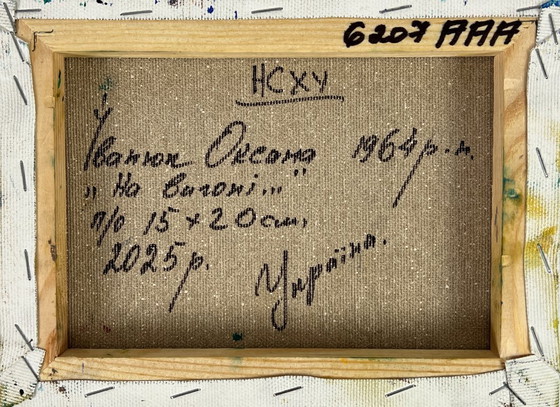 6207 AAA
НСХУ
Іванюк Оксана 1964 р.н.
„На вигоні..."
п/о 15 × 20 см,
2025 р.
Україна.